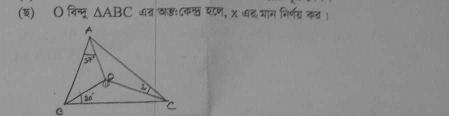 (ছ) O বিন্দু ΔABC এর অন্তঃকেন্দ্র হলে, x এর মান নির্ণয় কর।
A
37°
O
20°
B
C